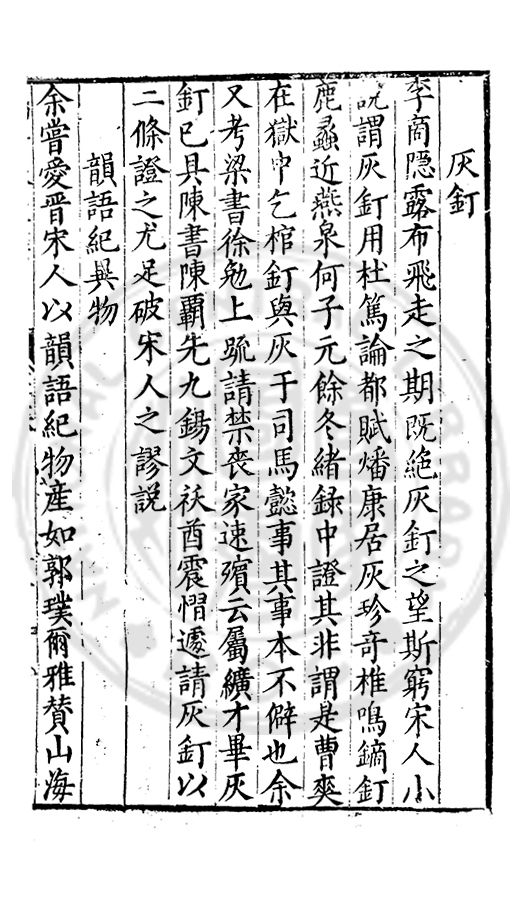 灰釘
李商隱露布飛走之期既絶灰釘之望斯窮宋人小
説謂灰釘用杜篤論都賦燔康居灰珍奇椎鳴鏑釘
鹿蠡近燕泉何子元餘冬緒録中證其非謂是曹爽
在獄中乞棺釘與灰于司馬懿事其事本不僻也余
又考梁書徐勉上疏請禁喪家速殯云屬纊才畢灰
釘已具陳書陳覇先九錫文祅酋震慴遽請灰釘以
二條證之尤足破宋人之謬説
韻語紀異物
余嘗愛晋宋人以韻語紀物産如郭璞爾雅賛山海